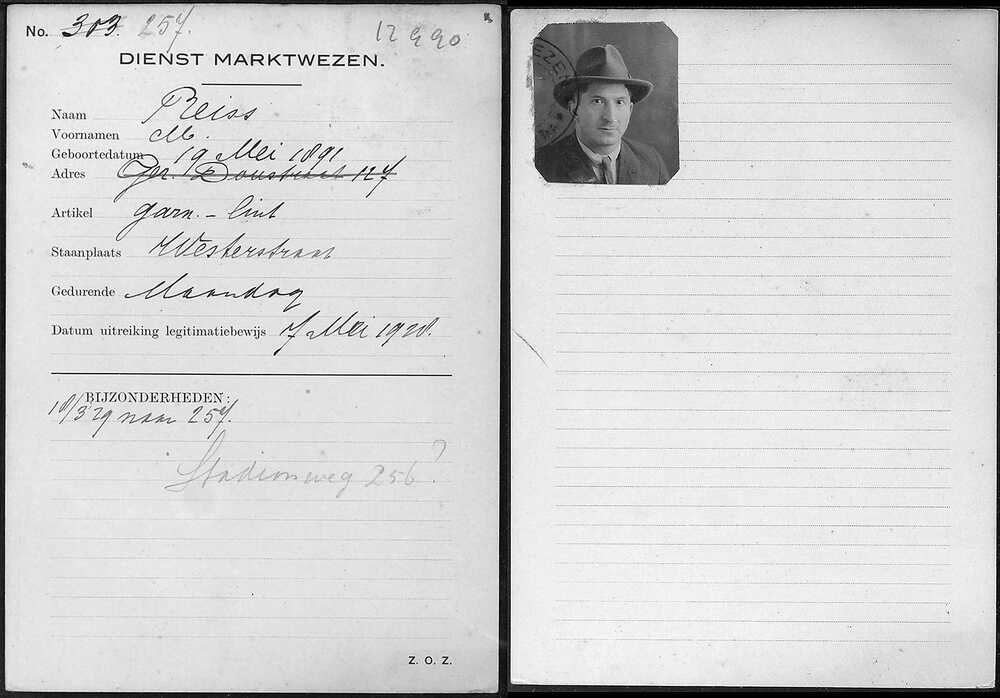 No. 303. 257.
12990
DIENST MARKTWEZEN.
Naam Reiss
Voornamen M.
Geboortedatum 19 Mei 1891
Adres Ger. Doustraat 127
Artikel garn. - lint
Staanplaats Westerstraat
Gedurende Maandag
Datum uitreiking legitimatiebewijs 7 Mei 1928.
BIJZONDERHEDEN:
18/3 29 naar 257.
Stadionweg 256?
Z. O. Z.